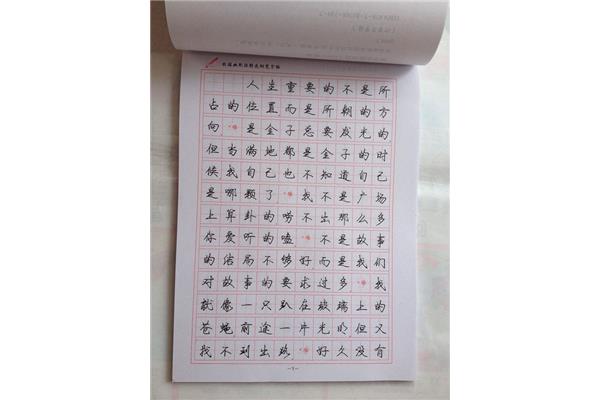 人生重要的不是所
占的位置而是所朝的方
向 是金子总要发光的
但当满地都是金子的时
候我自己也不知道自己
是哪颗了 我不是广场
上算卦的唠不出那么多
你爱听的嗑 不是故事
的结局不够好而是我们
对故事的要求过多 我
就像一只趴在玻璃上的
苍蝇前途一片光明但又
找不到出路 好久没有